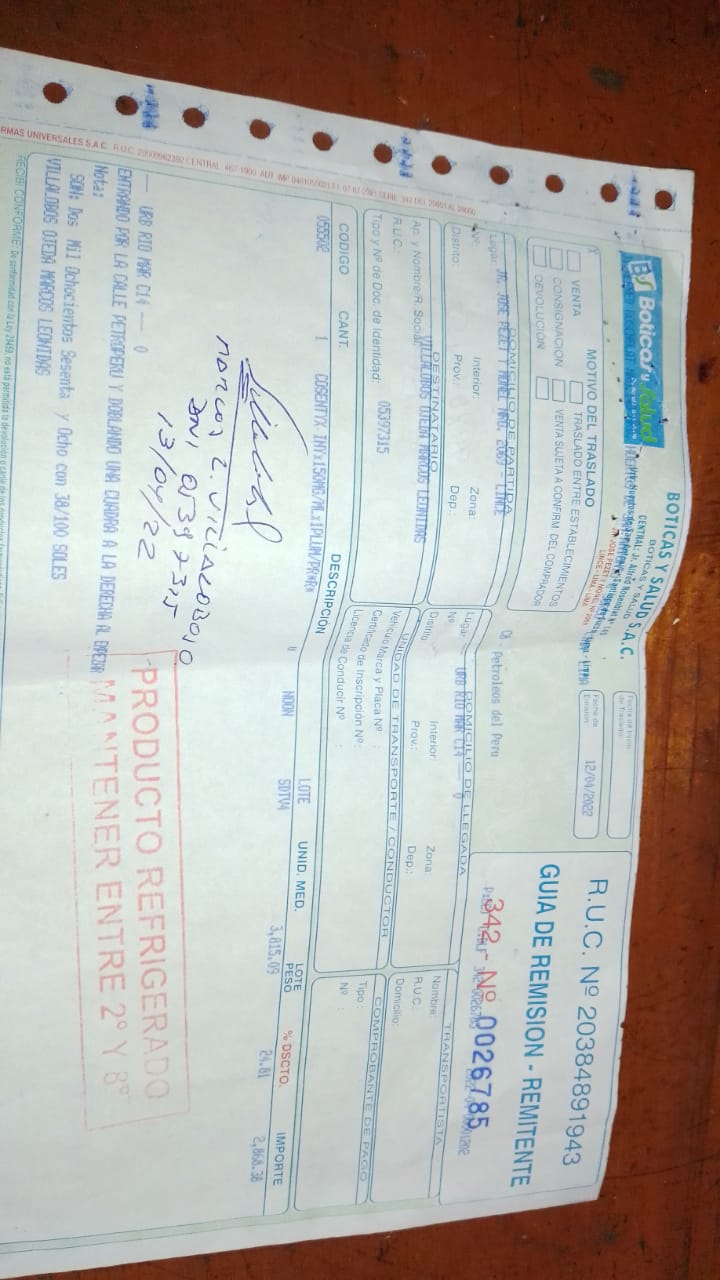 BS Boticas y Salud
BOTICAS Y SALUD S.A.C.
BOTICAS Y SALUD
CENTRAL: Jr. Alfred Rosenblat
R.U.C. Nº 20384891943
GUIA DE REMISION - REMITENTE
342 - Nº 0026785
Fecha de Inicio
de Traslado
Fecha de
Emisión 12/04/2022
MOTIVO DEL TRASLADO
VENTA
CONSIGNACION
DEVOLUCION
TRASLADO ENTRE ESTABLECIMIENTOS
VENTA SUJETA A CONFIRM. DEL COMPRADOR
Petroleos del Peru
DOMICILIO DE PARTIDA
Lugar: JR. JOSE PEZET Y MONEL NRO. 2069 - LINCE
Nº Interior: Zona:
Distrito: Prov.: Dep.:
DOMICILIO DE LLEGADA
Lugar: URB RIO MAR C14 -- 0
Nº Interior: Zona:
Distrito Prov.: Dep.:
DESTINATARIO
Ap. y Nombre/R. Social: VILLALOBOS OJEDA MARCOS LEONIDAS
R.U.C.:
Tipo y Nº de Doc. de Identidad: 05397315
UNIDAD DE TRANSPORTE / CONDUCTOR
Vehículo Marca y Placa Nº :
Certificado de Inscripción Nº :
Licencia de Conducir Nº :
TRANSPORTISTA
Nombre:
R.U.C.:
Domicilio:
COMPROBANTE DE PAGO
Tipo :
Nº :
CODIGO CANT. DESCRIPCIÓN LOTE UNID. MED. LOTE PESO % DSCTO. IMPORTE
055502 1 COSENTYX INYx150MG/MLx1PLUM/PR*R* NOON SDTV4 3,815.09 24.81 2,868.38
Marcos L. Villalobos O
DNI 05397315
13/04/22
PRODUCTO REFRIGERADO
MANTENER ENTRE 2° Y 8°
-- URB RIO MAR C14 -- 0
ENTRANDO POR LA CALLE PETROPERU Y DOBLANDO UNA CUADRA A LA DERECHA AL EMPEZAR
Nota:
SON: Dos Mil Ochocientos Sesenta y Ocho con 38/100 SOLES
VILLALOBOS OJEDA MARCOS LEONIDAS
RECIBI CONFORME: De conformidad con la Ley 29459, no está permitida la devolución o canje de los productos